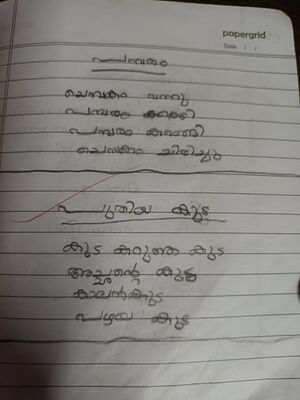 papergrid
Date: / /
പമ്പരം
ചെമ്പകം വന്നു
പമ്പരം കറക്കി
പമ്പരം കറങ്ങി
ചെമ്പകം ചിരിച്ചു
പുതിയ കുട
കുട കറുത്ത കുട
അച്ഛന്റെ കുട
കാലൻകുട
പഴയ കുട